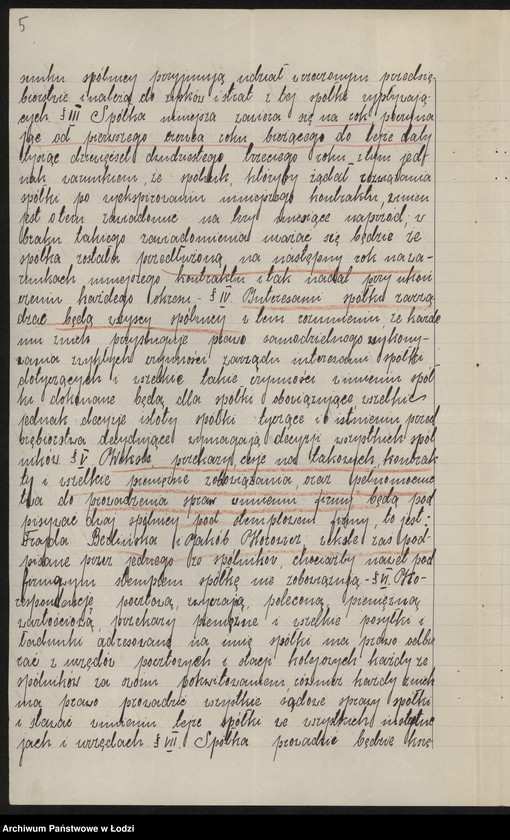 5
sunku spólnicy przyjmują udział w rzeczonym przedsię-
biorstwie i należą do zysków i strat z tej spółki wypływają-
cych § III Spółka niniejsza zawiera się na rok poczyna
jąc od pierwszego czerwca roku bieżącego do tejże daty
tysiąc dziewięćset dwudziestego trzeciego roku, z tym jed
nak warunkiem, że spólnik, któryby żądał rozwiązania
spółki po wyekspirowaniu niniejszego kontraktu, winien
jest o tem zawiadomić na trzy miesiące naprzód; w
braku takiego zawiadomienia uważać się będzie że
spółka została przedłużoną na następny rok na wa-
runkach niniejszego kontraktu i tak nadal przy ukoń
czeniu każdego okresu - § IV. Interesami spółki zarzą
dzać będą wszyscy spólnicy z tem rozumieniem, że każde
mu z nich przysługuje prawo samodzielnego wykony-
wania zwykłych czynności zarządu interesami spółki
dotyczących i wszelkie takie czynności w imieniu spół
ki dokonane będą dla spółki obowiązujące wszelkie
jednak decyzje istoty spółki tyczące i o istnieniu przed
siębiorstwa decydujące wymagają decyzji wszystkich spól
ników. § V Weksle, przekazy, cesje na takowych, kontrak
ty i wszelkie pieniężne zobowiązania, oraz pełnomocnic
twa do prowadzenia spraw w imieniu firmy będą pod
pisywać dwaj spólnicy pod stemplem firmy, to jest:
Frajda i Jakób weksle zaś pod-
pisane przez jednego ze spólników, chociażby nawet pod
firmowym stemplem spółkę nie zobowiązują - § VI. Ko-
respondencję pocztową, zwyczają, poleconą, pieniężną
wartościową, przekazy pieniężne i wszelkie posyłki i
ładunki adresowane na imię spółki ma prawo odbie
rać z urzędów pocztowych i stacji kolejowych każdy ze
spólników za swoim pokwitowaniem, również każdy z nich
ma prawo prowadzić wszystkie sądowe sprawy spółki
i stawać w imieniu tejże spółki we wszystkich instytuc
jach i urzędach § VII. Spółka prowadzić będzie
Archiwum Państwowe w Łodzi